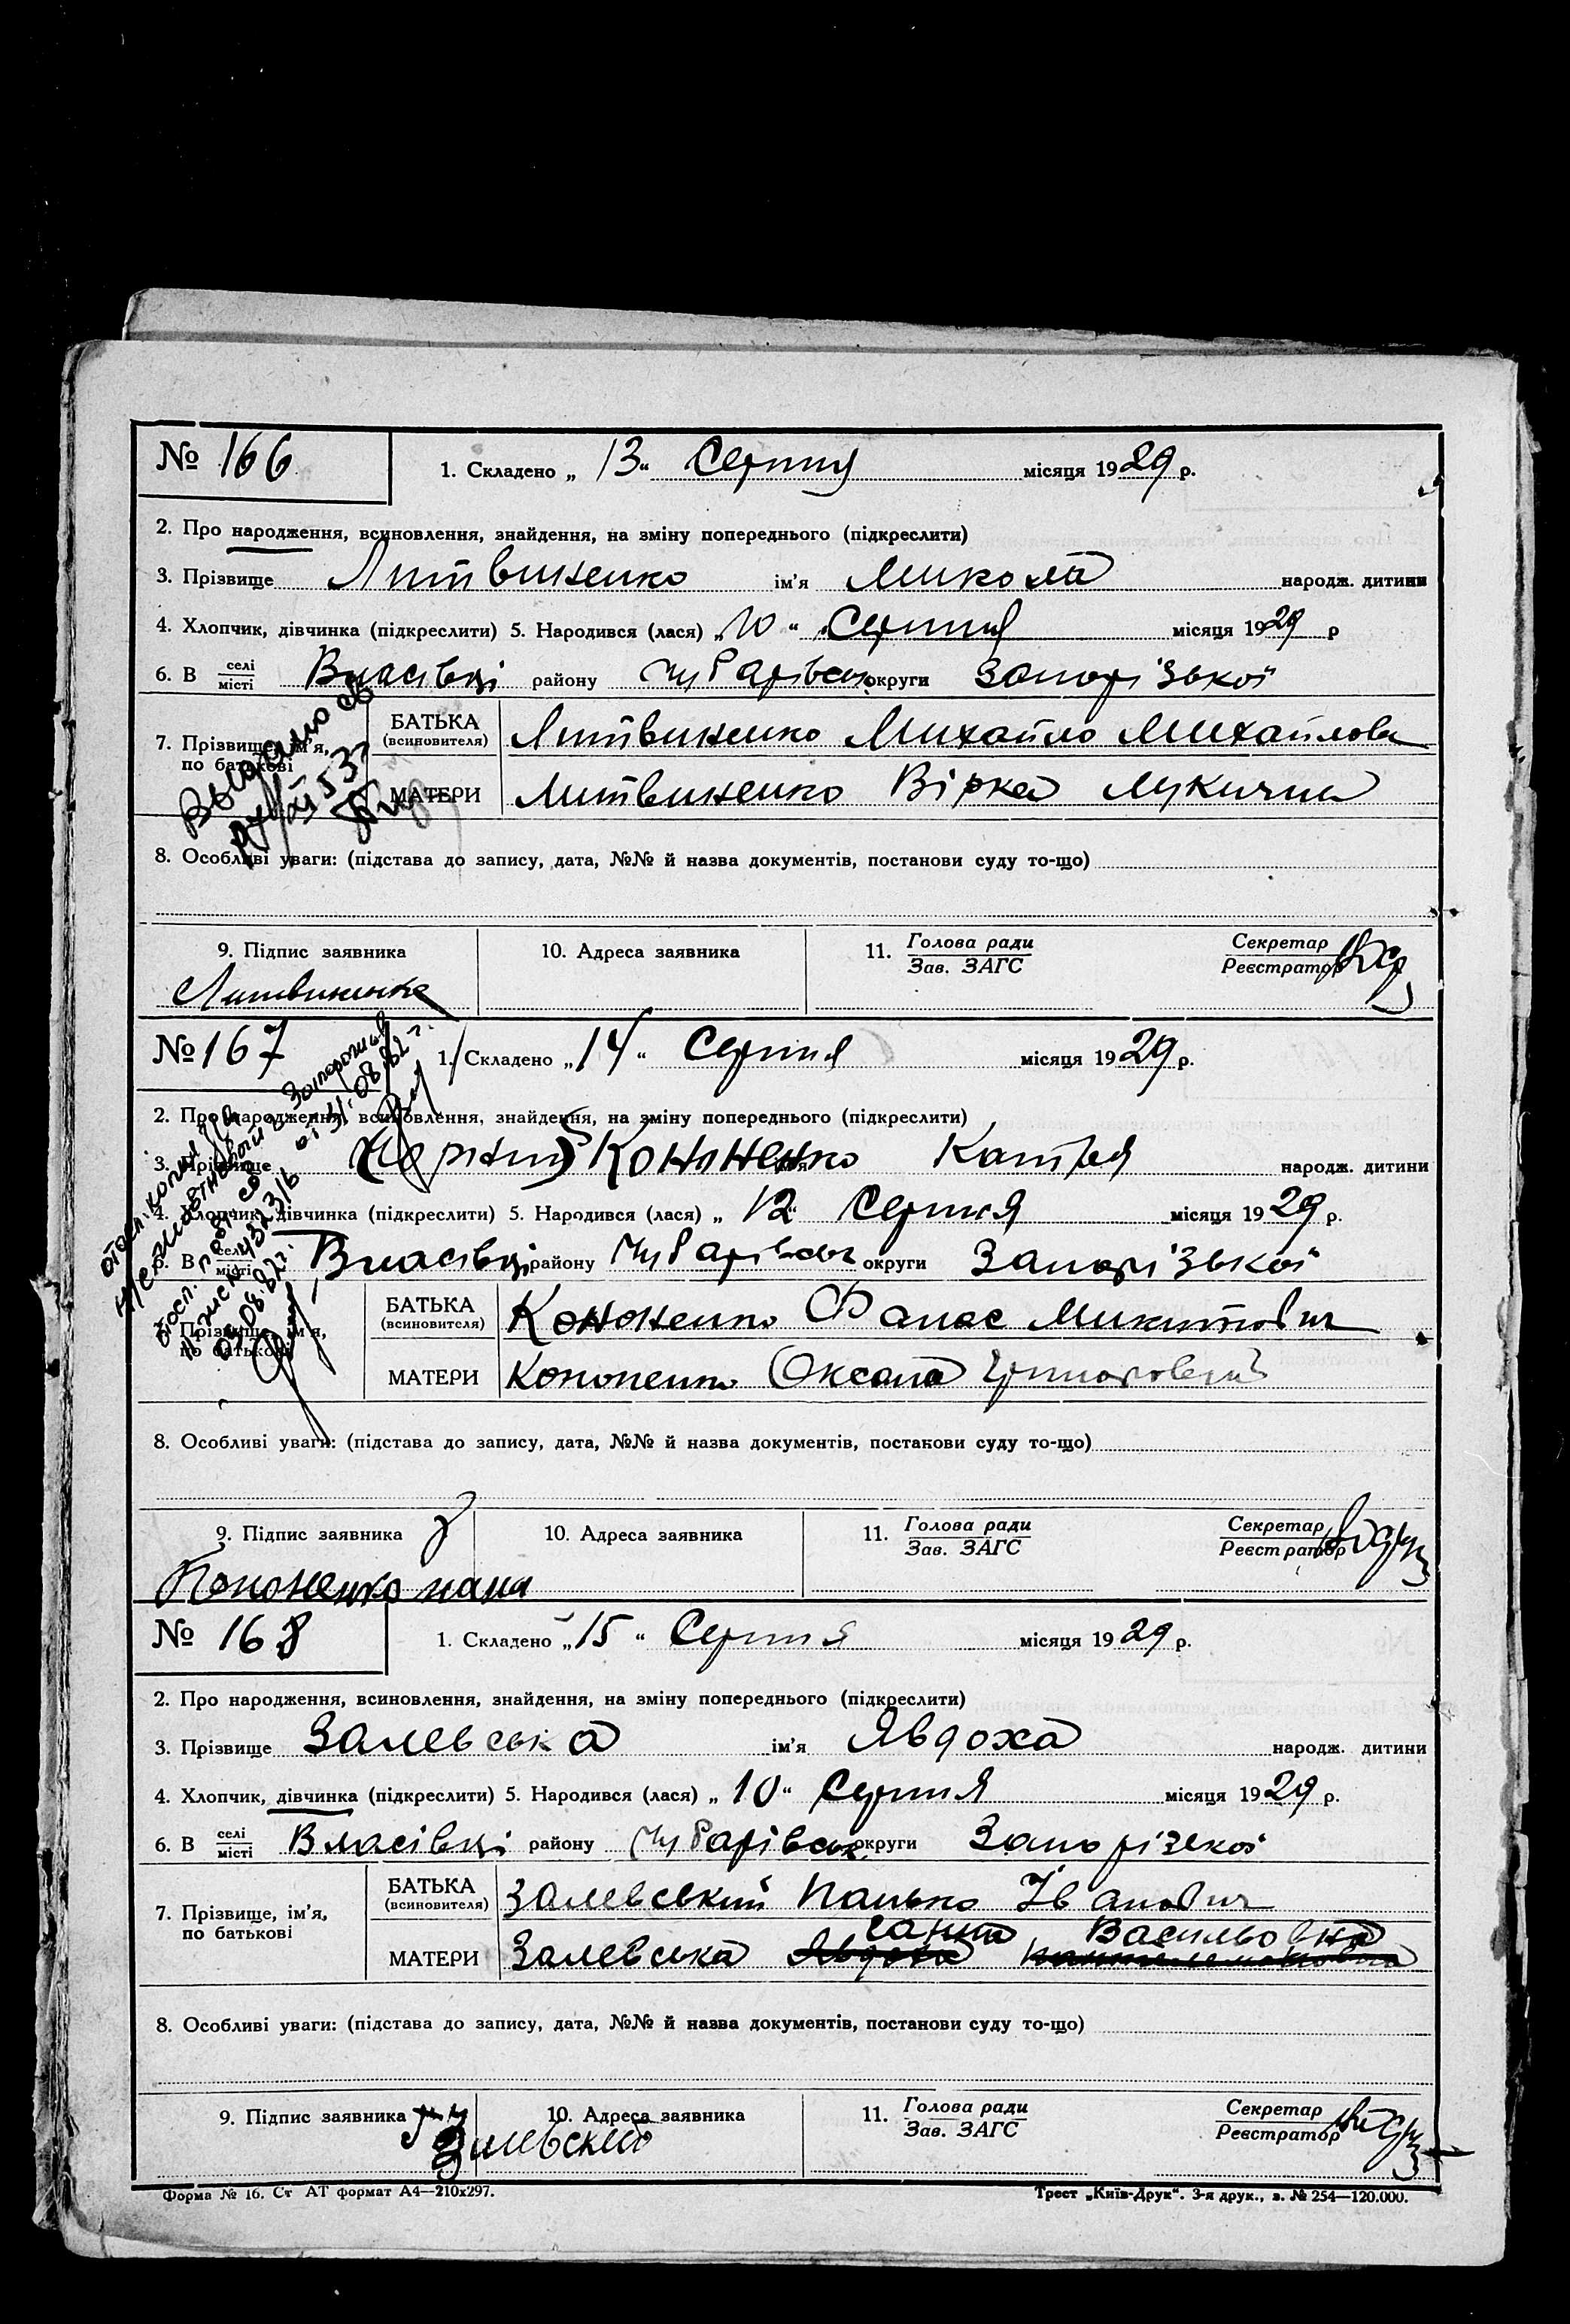 № 166
1. Складено „ 13 “ Серпня місяця 1929 р.
2. Про народження, всиновлення, знайдення, на зміну попереднього (підкреслити)
3. Прізвище Литвиненко ім'я Микола народж. дитини
4. Хлопчик, дівчинка (підкреслити) 5. Народився (лася) „ 10 “ Серпня місяця 1929 р
6. В селі/місті Власівці району Чубарівськ округи Запорізької
7. Прізвище, ім'я, по батькові
БАТЬКА (всиновителя) Литвиненко Михайло Михайлова
МАТЕРИ Литвиненко Вірка Лукична
Выдано св
8. Особливі уваги: (підстава до запису, дата, №№ й назва документів, постанови суду то-що)
9. Підпис заявника 10. Адреса заявника 11. Голова ради/Зав. ЗАГС Секретар/Реєстратор
Литвиненко
№ 167
1. Складено „ 14 “ Серпня місяця 1929 р.
2. Про народження, всиновлення, знайдення, на зміну попереднього (підкреслити)
3. Прізвище Кононенко Катря народж. дитини
4. Хлопчик, дівчинка (підкреслити) 5. Народився (лася) „ 12 “ Серпня місяця 1929 р.
6. В селі/місті Власівці району Чубарівськ округи Запорізької
7. Прізвище, ім'я, по батькові
БАТЬКА (всиновителя) Кононенко Фанас Микитович
МАТЕРИ Кононенко Оксана
8. Особливі уваги: (підстава до запису, дата, №№ й назва документів, постанови суду то-що)
9. Підпис заявника 10. Адреса заявника 11. Голова ради/Зав. ЗАГС Секретар/Реєстратор
Кононенко
№ 168
1. Складено „ 15 “ Серпня місяця 1929 р.
2. Про народження, всиновлення, знайдення, на зміну попереднього (підкреслити)
3. Прізвище Залевська ім'я Явдоха народж. дитини
4. Хлопчик, дівчинка (підкреслити) 5. Народився (лася) „ 10 “ Серпня місяця 1929 р.
6. В селі/місті Власівці району Чубарівськ округи Запорізької
7. Прізвище, ім'я, по батькові
БАТЬКА (всиновителя) Залевський Панько Іванович
Ганна Васильовна
МАТЕРИ Залевська Явдоха
8. Особливі уваги: (підстава до запису, дата, №№ й назва документів, постанови суду то-що)
9. Підпис заявника 10. Адреса заявника 11. Голова ради/Зав. ЗАГС Секретар/Реєстратор
Форма № 16. Ст АТ формат А4—210х297.
Трест „Київ-Друк“. 3-я друк., з. № 254—120.000.